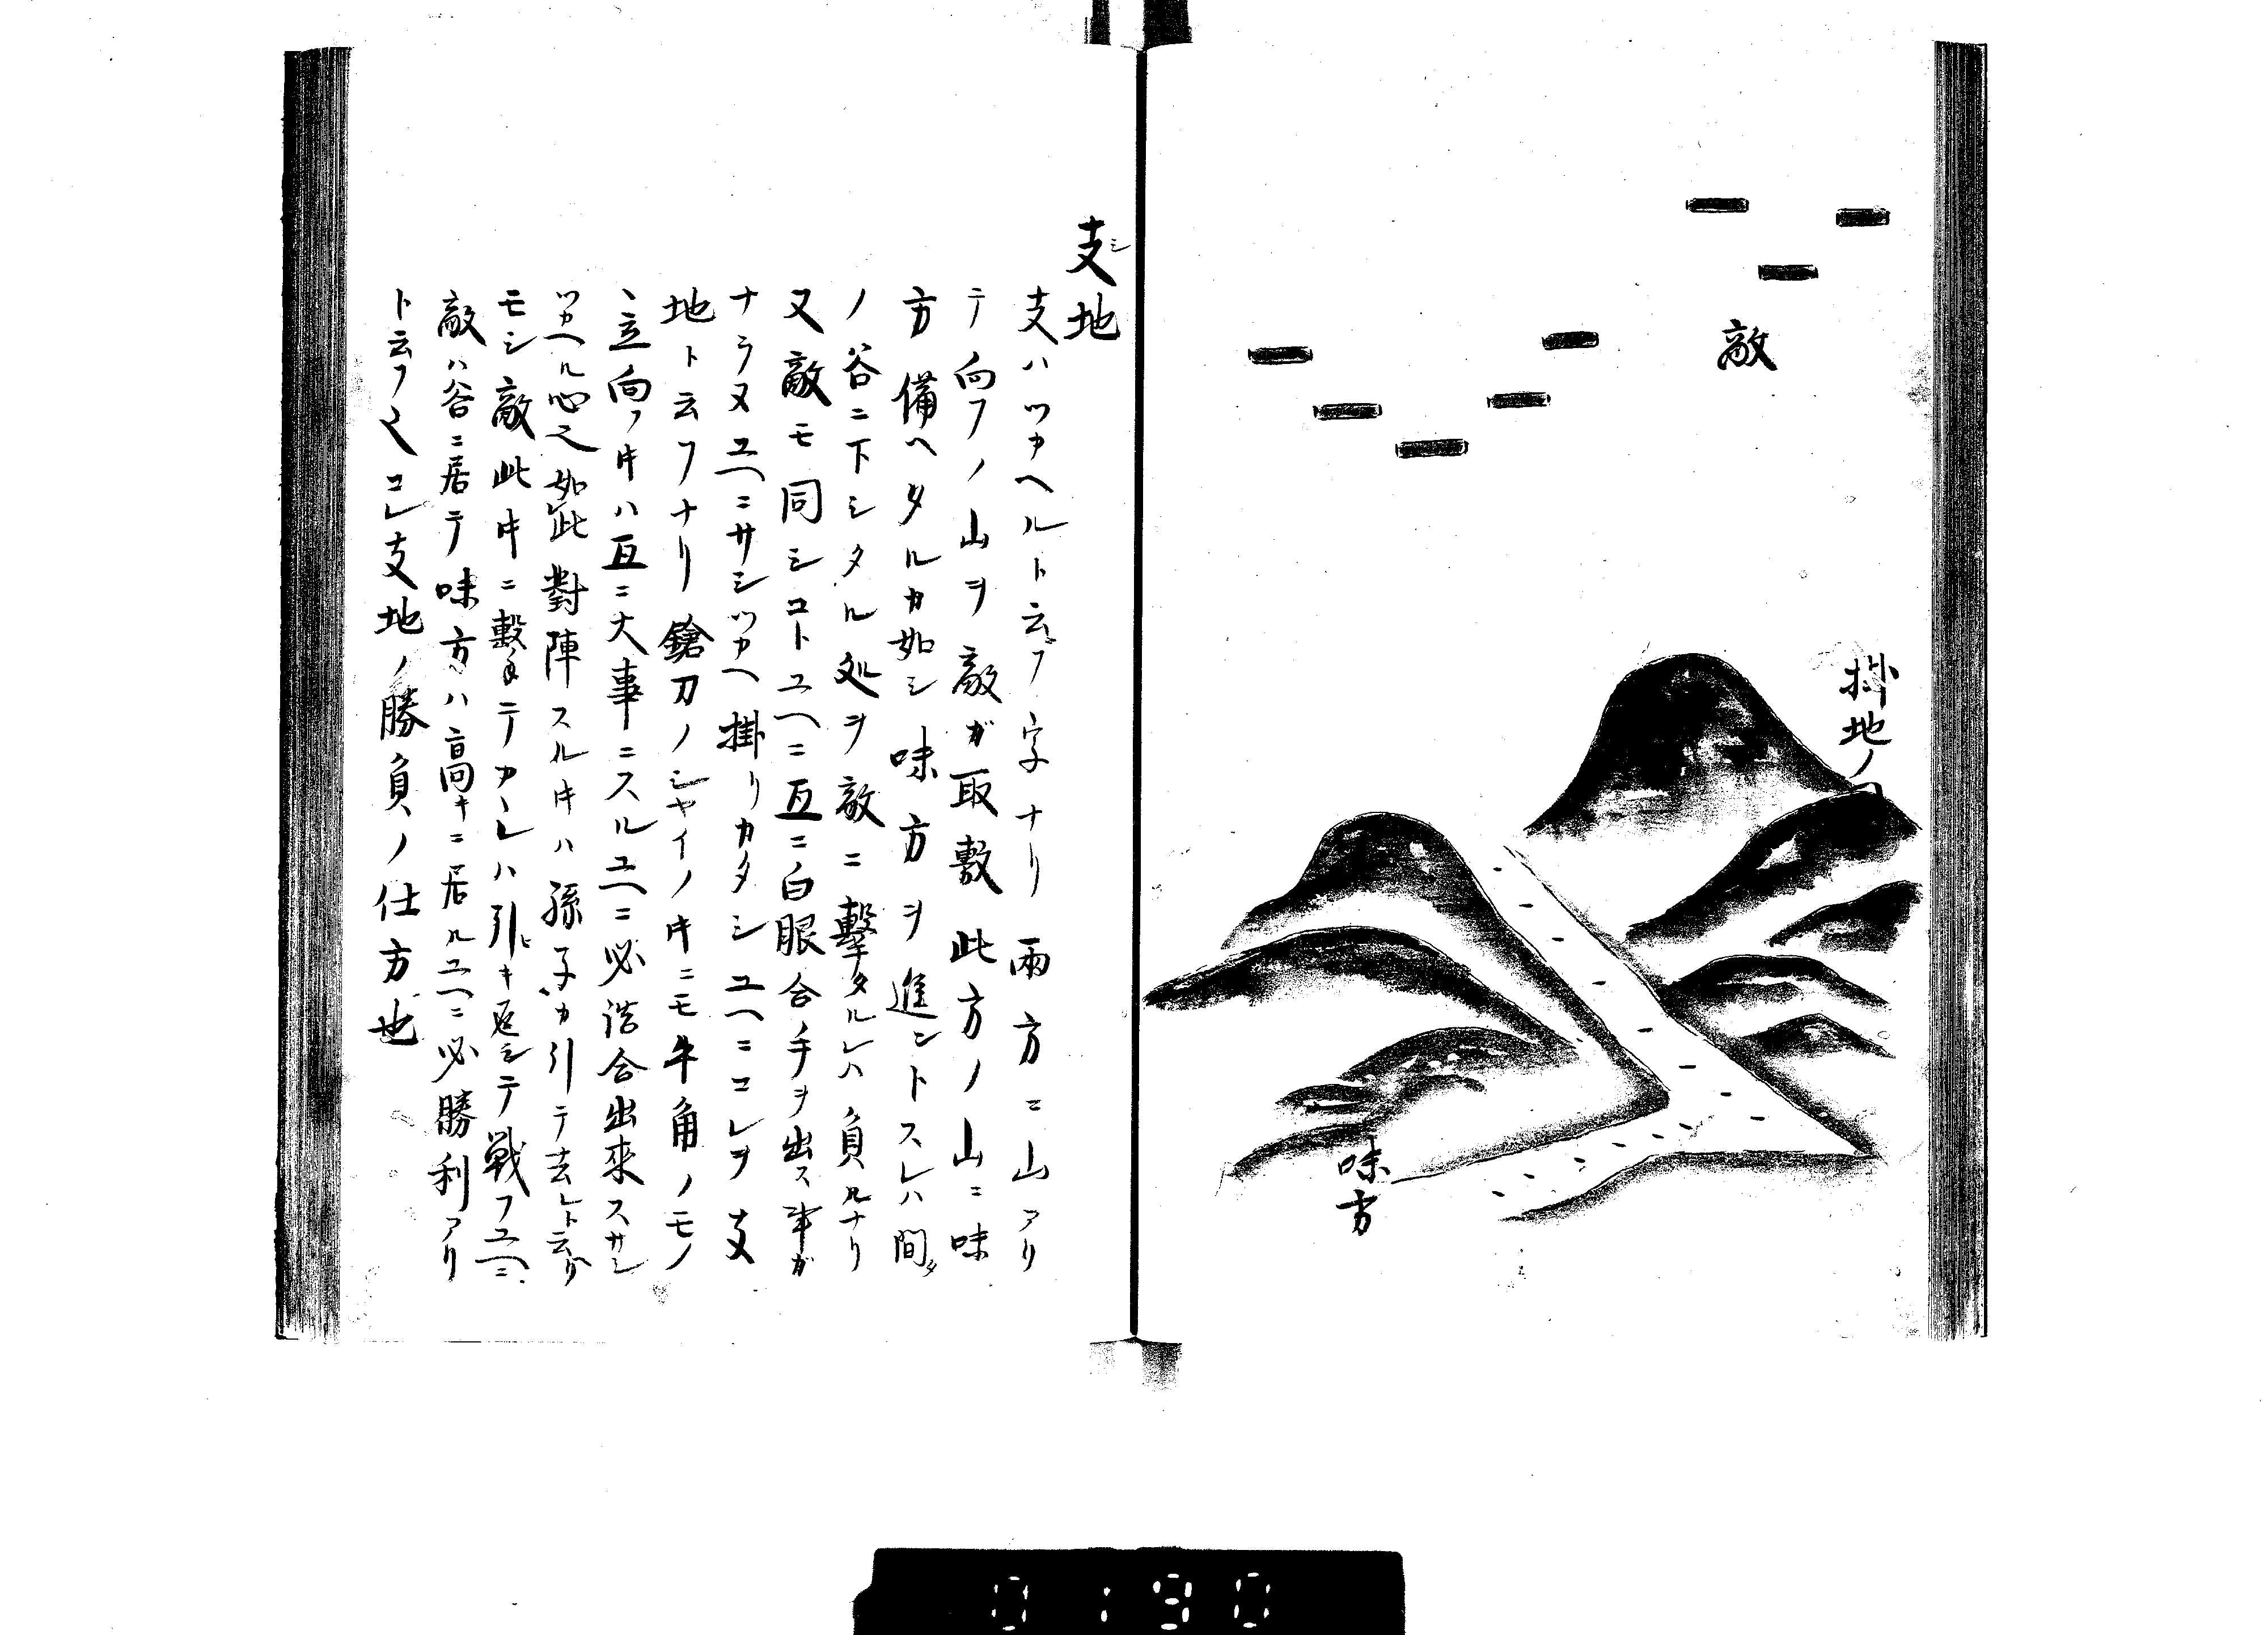 敵
掛地ノ
味方
支地
シ
支ハツカヘルト云フ字ナリ両方ニ山アリ
テ向フノ山ヲ敵ガ取敷此方ノ山ニ味
方備ヘタルカ如シ味方ヲ進ントスレハ間タ
ノ谷ニ下シタル処ヲ敵ニ撃タルレハ負ルナリ
又敵モ同シコトユヘニ互ニ白眼合手ヲ出ス事ガ
ナラヌユヘニサシツカヘ掛リカタシユヘニコレヲ支
地ト云フナリ鎗刀ノシヤイノ寸ニモ牛角ノモノ
立向フ寸ハ互ニ大事ニスルユヘニ必詰合出来スサシ
ツカヘル心也如此對陣スル寸ハ孫子カ引テ去レト云リ
モシ敵此寸ニ撃テカヽレハ引キ返シテ戦フユヘニ
敵ハ谷ニ居テ味方ハ高キニ居ルユヘニ必勝利アリ
ト云フ也コレ支地ノ勝負ノ仕方也
0190